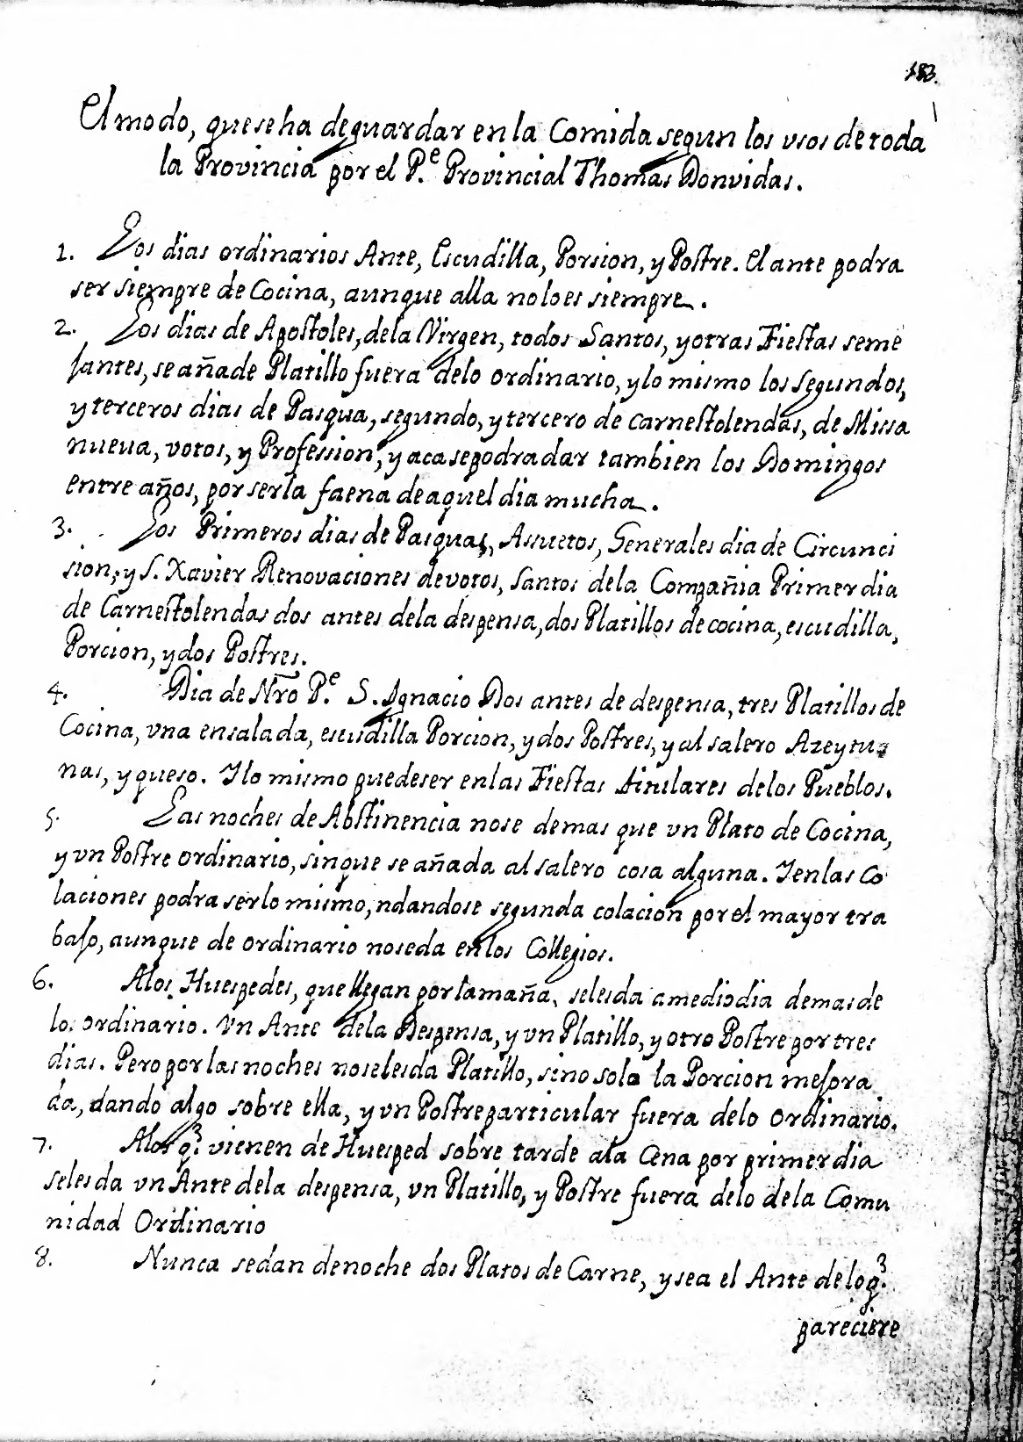 183.
El modo, que se ha de guardar en la Comida segun los vsos de toda
la Provincia por el P.e Provincial Thomas Donvidas.
1. Los dias ordinarios Ante, Escudilla, Porsion, y Postre. El ante podra
ser siempre de Cocina, aunque alla no lo es siempre.
2. Los dias de Apostoles, de la Virgen, todos Santos, y otras Fiestas seme
jantes, se añade Platillo fuera delo ordinario, y lo mismo los segundos,
y terceros dias de Pasqua, segundo, y tercero de carnestolendas, de Missa
nueva, votos, y Profession, y aca se podra dar tambien los Domingos
entre años, por ser la faena de aquel dia mucha.
3. Los Primeros dias de Pasquas, Assuetos, Generales dia de Circunci
sion, y S. Xavier Renovaciones de votos, Santos de la Compañia Primer dia
de Carnestolendas dos antes de la despensa, dos Platillos de cocina, escudilla,
Porcion, y dos Postres.
4. Dia de Nro P.e S. Ignacio Dos antes de despensa, tres Platillos de
Cocina, vna ensalada, escudilla Porcion, y dos Postres, y al salero Azeytu
nas, y queso. Y lo mismo puede ser en las Fiestas titulares de los Pueblos.
5. Las noches de Abstinencia no se de mas que vn Plato de Cocina,
y vn Postre ordinario, sin que se añada al salero cosa alguna. Y en las Co
laciones podra ser lo mismo, ndandose segunda colacion por el mayor tra
bajo, aunque de ordinario no se da en los Collegios.
6. A los Huespedes, que llegan por la mañana, se les da a medio dia demas de
lo ordinario. Vn Ante de la Despensa, y vn Platillo, y otro Postre por tres
dias. Pero por las noches no se les da Platillo, sino solo la Porcion mejora
da, dando algo sobre ella, y vn Postre particular fuera delo ordinario.
7. A los q.e vienen de Huesped sobre tarde a la Cena por primer dia
se les da vn Ante de la despensa, vn Platillo, y Postre fuera delo de la Comu
nidad Ordinario
8. Nunca se dan de noche dos Platos de Carne, y sea el Ante de lo q.e
pareciere